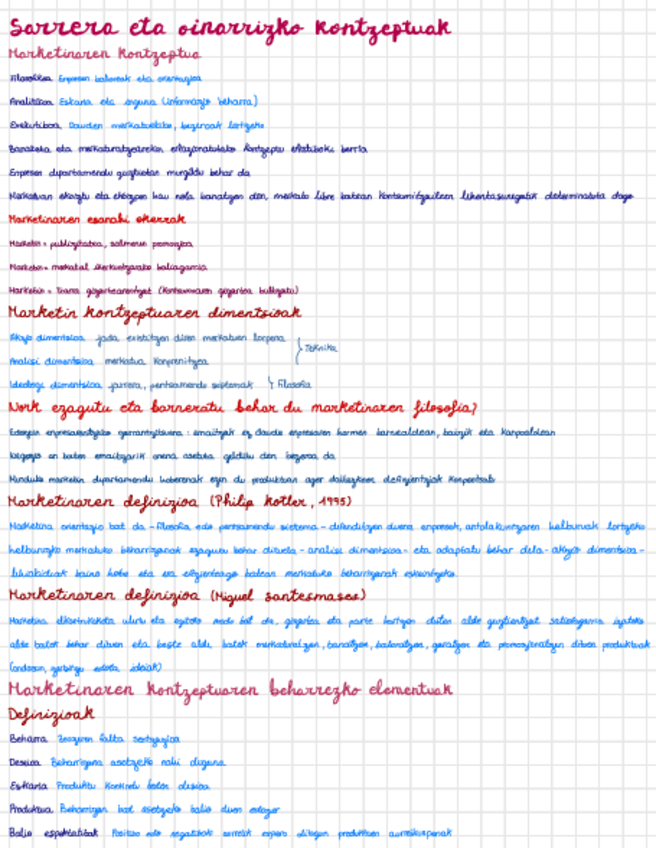 Sarrera eta oinarrizko kontzeptuak
Marketinaren kontzeptua
Filosofikoa Enpresen balioreak eta orientazioa
Analitikoa Eskaria eta inguru (informazio beharra)
Exekutiboa Dauden merkatuetako, bezeroak lortzeko
Banaketa eta merkaturatzearekin erlazionatutako kontzeptu erlatiboki berria
Enpresen dipartamendu guztietan murgildu behar da
Merkatuan eta hau nola banatzen den, merkatu libre batean kontsumitzaileen determinatuta dago
Marketinaren esanahi okerrak
Marketin = publizitatea, salmenen promozioa
Marketin = merkatal ikerkuntzarako baliagarria
Marketin = (kontsumoaren gizartea bultzatu)
Marketin kontzeptuaren dimentsioak
Akzio dimentsioa jada existitzen diren merkatuen lorpena } Teknika
Analisi dimentsioa merkatua konprenitzea
Ideologi dimentsioa jarrera, pentsamendu sistemak } Filosofia
Nork ezagutu eta barneratu behar du marketinaren filosofia?
Edozein garrantzitsuena: emaitzak ez daude enpresaren barnealdean, baizik eta kanpoaldean
on baten emaitzarik onena asetuta gelditu den bezeroa da
Munduko marketin dipartamendu hoberenak ezin du produktuan ager daitezkeen defizientziak konpentsatu
Marketinaren definizioa (Philip Kotler, 1995)
Marketina orientazio bat da -filosofia edo pentsamendu sistema- defendatzen duena enpresek, antolakuntzaren helburuak lortzeko
helburuzko merkatuko beharrizanak ezagutu behar dituela -analisi dimentsioa- eta adaptatu behar dela -akzio dimentsioa-
lehiakideak baino hobe eta era efizienteago batean merkatuko beharrizanak
Marketinaren definizioa (Miguel Santesmases)
Marketina elkartrukaketa ulertu eta egiteko modu bat da, gogobetea eta parte hartzen duten alde guztientzat izateko
alde batek behar dituen eta beste alde batek merkaturatzen, banatzen, baloratzen, garatzen eta promozionatzen dituen produktuak
(ondasun, zerbitzu edota ideiak)
Marketinaren kontzeptuaren beharrezko elementuak
Definizioak
Beharra Zeozeren falta sentsazioa
Desioa Beharrizana asetzeko nahi duguna
Eskaria Produktu konkretu baten desioa
Produktua Beharrizan bat asetzeko balio duen edozer
Balio espektatibak Positibo edo negatiboak espero ditugun produktuen aurreikuspenak